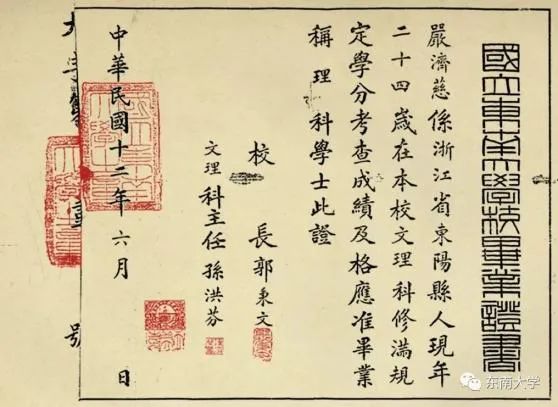 國立東南大學校畢業證書
嚴濟慈係浙江省東陽縣人現年
二十四歲在本校文理科修滿規
定學分考查成績及格應准畢業
稱理科學士此證
校長郭秉文
文理科主任孫洪芬
中華民國十二年六月 日
號
东南大学